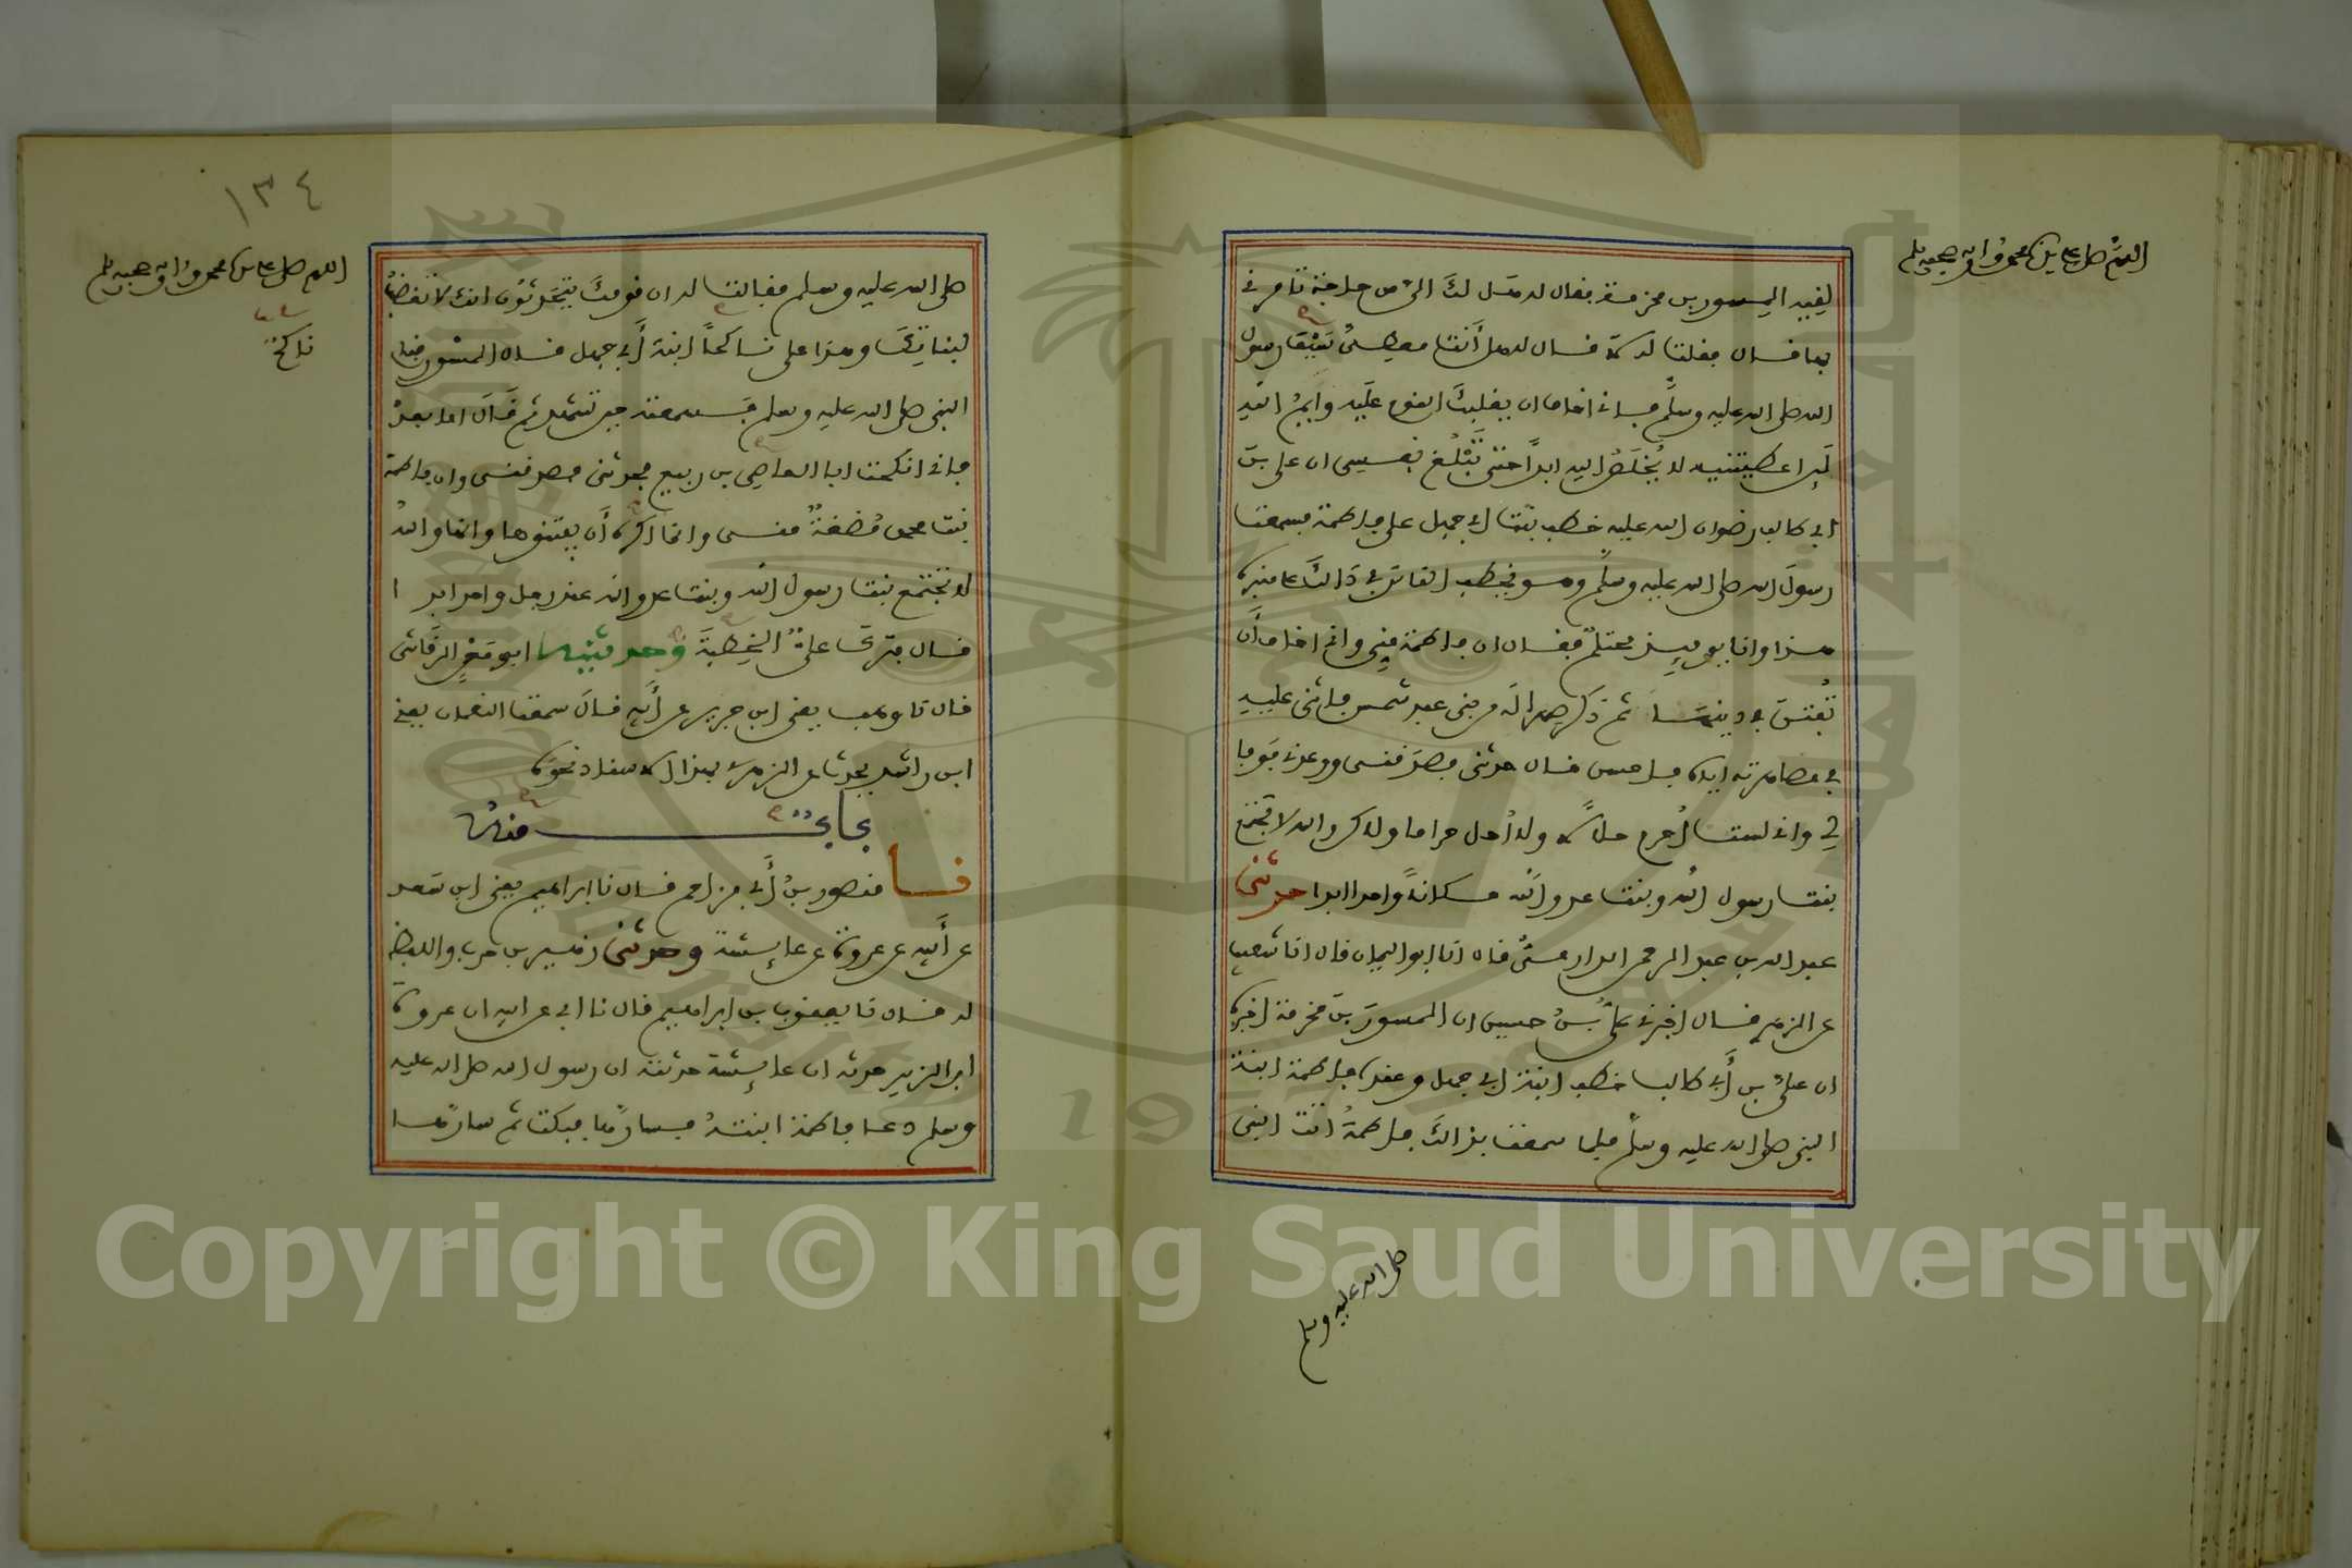 اللهم صل على سيدنا محمد وآله وصحبه وسلم
لقيه المسور بن مخرمة فقال له هل لك إلي من حاجة تأمرني
بها قال فقلت له لا قال له هل أنت معطي سيف رسول
الله صلى الله عليه وسلم فإني أخاف أن يغلبك القوم عليه وأيم الله
لئن أعطيتنيه لا يخلص إليه أبدا حتى تبلغ نفسي إن علي بن
أبي طالب رضوان الله عليه خطب بنت أبي جهل على فاطمة فسمعت
رسول الله صلى الله عليه وسلم وهو يخطب الناس في ذلك على منبره
هذا وأنا يومئذ محتلم فقال إن فاطمة مني وإني أخاف أن
تفتن في دينها ثم ذكر صهرا له من بني عبد شمس فأثنى عليه
في مصاهرته إياه فأحسن قال حدثني فصدقني ووعدني فوفا
لي وإني لست أحرم حلالا ولا أحل حراما ولكن والله لا تجتمع
بنت رسول الله وبنت عدو الله مكانا واحدا أبدا حدثني
عبد الله بن عبد الرحمن الدارمي قال انا أبو اليمان قال انا شعيب
عن الزهري قال أخبرني علي بن حسين أن المسور بن مخرمة أخبره
أن علي بن أبي طالب خطب ابنة أبي جهل وعنده فاطمة ابنة
النبي صلى الله عليه وسلم فلما سمعت بذلك فاطمة أتت النبي
صلى الله عليه وسلم
١٣٤
اللهم صل على سيدنا محمد وآله وصحبه وسلم
ناكح
صلى الله عليه وسلم فقالت له إن قومك يتحدثون أنك لا تغضب
لبناتك وهذا علي ناكحا ابنة أبي جهل قال المسور فقام
النبي صلى الله عليه وسلم فسمعته حين تشهد ثم قال أما بعد
فإني أنكحت أبا العاصي بن ربيع فحدثني فصدقني وإن فاطمة
بنت محمد مضغة مني وإنما أكره أن يفتنوها وإنها والله
لا تجتمع بنت رسول الله وبنت عدو الله عند رجل واحد أبدا
قال فترك علي الخطبة وحدثنيه أبو معن الرقاشي
قال نا وهب يعني ابن جرير عن أبيه قال سمعت النعمان يعني
ابن راشد يحدث عن الزهري بهذا الإسناد نحوه
باب منه
نا منصور بن أبي مزاحم قال نا إبراهيم يعني ابن سعد
عن أبيه عن عروة عن عائشة وحدثني زهير بن حرب واللفظ
له قال نا يعقوب بن إبراهيم قال نا أبي عن أبيه أن عروة
ابن الزبير حدثه أن عائشة حدثته أن رسول الله صلى الله عليه
وسلم دعا فاطمة ابنته فسارها فبكت ثم سارها
Copyright © King Saud University